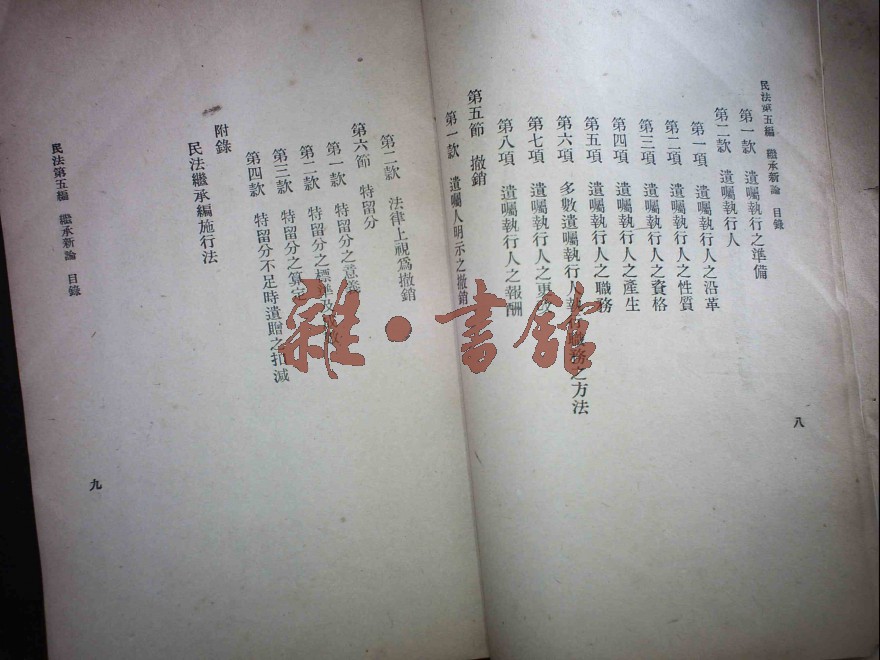 民法第五編　繼承新論　目錄
第一款　遺囑執行之準備
第二款　遺囑執行人
第一項　遺囑執行人之沿革
第二項　遺囑執行人之性質
第三項　遺囑執行人之資格
第四項　遺囑執行人之產生
第五項　遺囑執行人之職務
第六項　多數遺囑執行人執行職務之方法
第七項　遺囑執行人之更
第八項　遺囑執行人之報酬
第五節　撤銷
第一款　遺囑人明示之撤銷
八
第二款　法律上視爲撤銷
第六節　特留分
第一款　特留分之意義
第二款　特留分之標準及
第三款　特留分之算定
第四款　特留分不足時遺贈之扣減
附錄
民法繼承編施行法
民法第五編　繼承新論　目錄
九
雜·書館